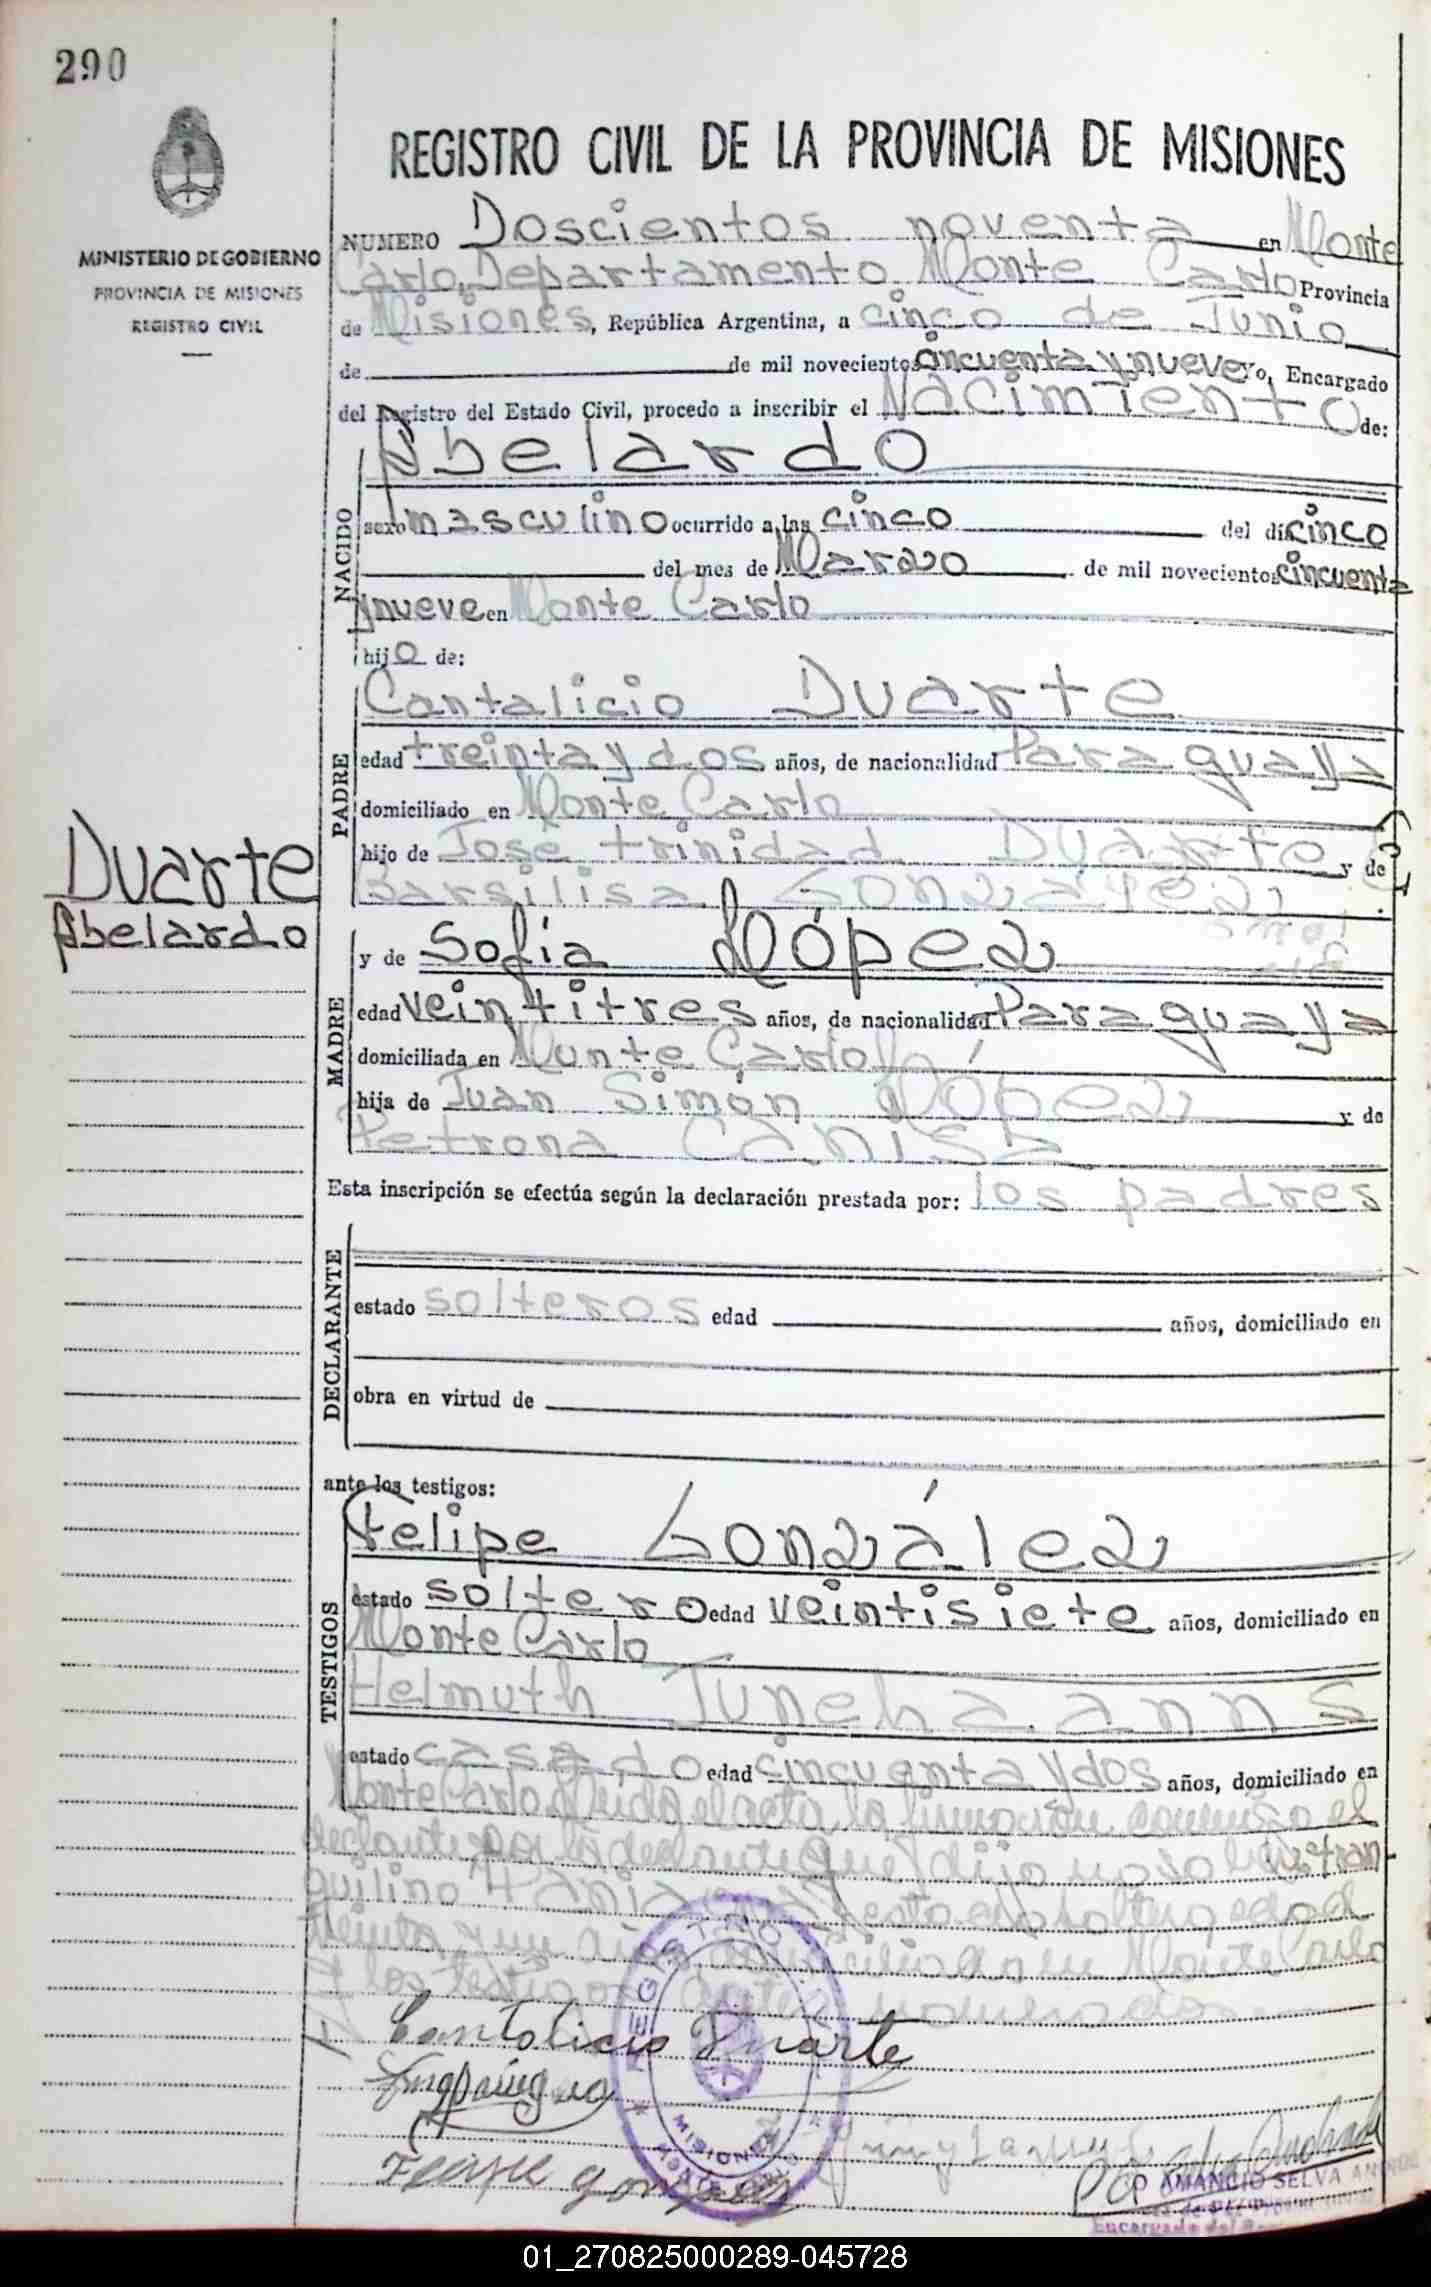 290
REGISTRO CIVIL DE LA PROVINCIA DE MISIONES
MINISTERIO DE GOBIERNO
PROVINCIA DE MISIONES
REGISTRO CIVIL
NUMERO Doscientos noventa en Monte
Carlo, Departamento Monte Carlo Provincia
de Misiones, República Argentina, a cinco de Junio
de de mil novecientos cincuenta y nueve Yo, Encargado
del Registro del Estado Civil, procedo a inscribir el Nacimiento de:
Abelardo
NACIDO
sexo masculino ocurrido a las cinco del día cinco
del mes de Marzo de mil novecientos cincuenta
y nueve en Monte Carlo
hijo de:
PADRE
Cantalicio Duarte
edad treinta y dos años, de nacionalidad Paraguaya
domiciliado en Monte Carlo
hijo de José trinidad Duarte y de
Barsilisa González
Duarte
Abelardo
MADRE
y de Sofía López
edad veintitres años, de nacionalidad Paraguaya
domiciliada en Monte Carlo
hija de Juan Simón López y de
Petrona
Esta inscripción se efectúa según la declaración prestada por: los padres
DECLARANTE
estado solteros edad años, domiciliado en
obra en virtud de
ante los testigos:
TESTIGOS
Felipe González
estado soltero edad veintisiete años, domiciliado en
Monte Carlo
Helmuth
estado casado edad cincuenta y dos años, domiciliado en
Monte Carlo Leída el acta la firmo el
que dijo no
quilino edad
treinta y un Monte Carlo
y los testigos
Cantalicio Duarte
Felipe Gonzalez
REGISTRO CIVIL
MISIONES
AMANCIO SELVA
Encargado del
01_270825000289-045728